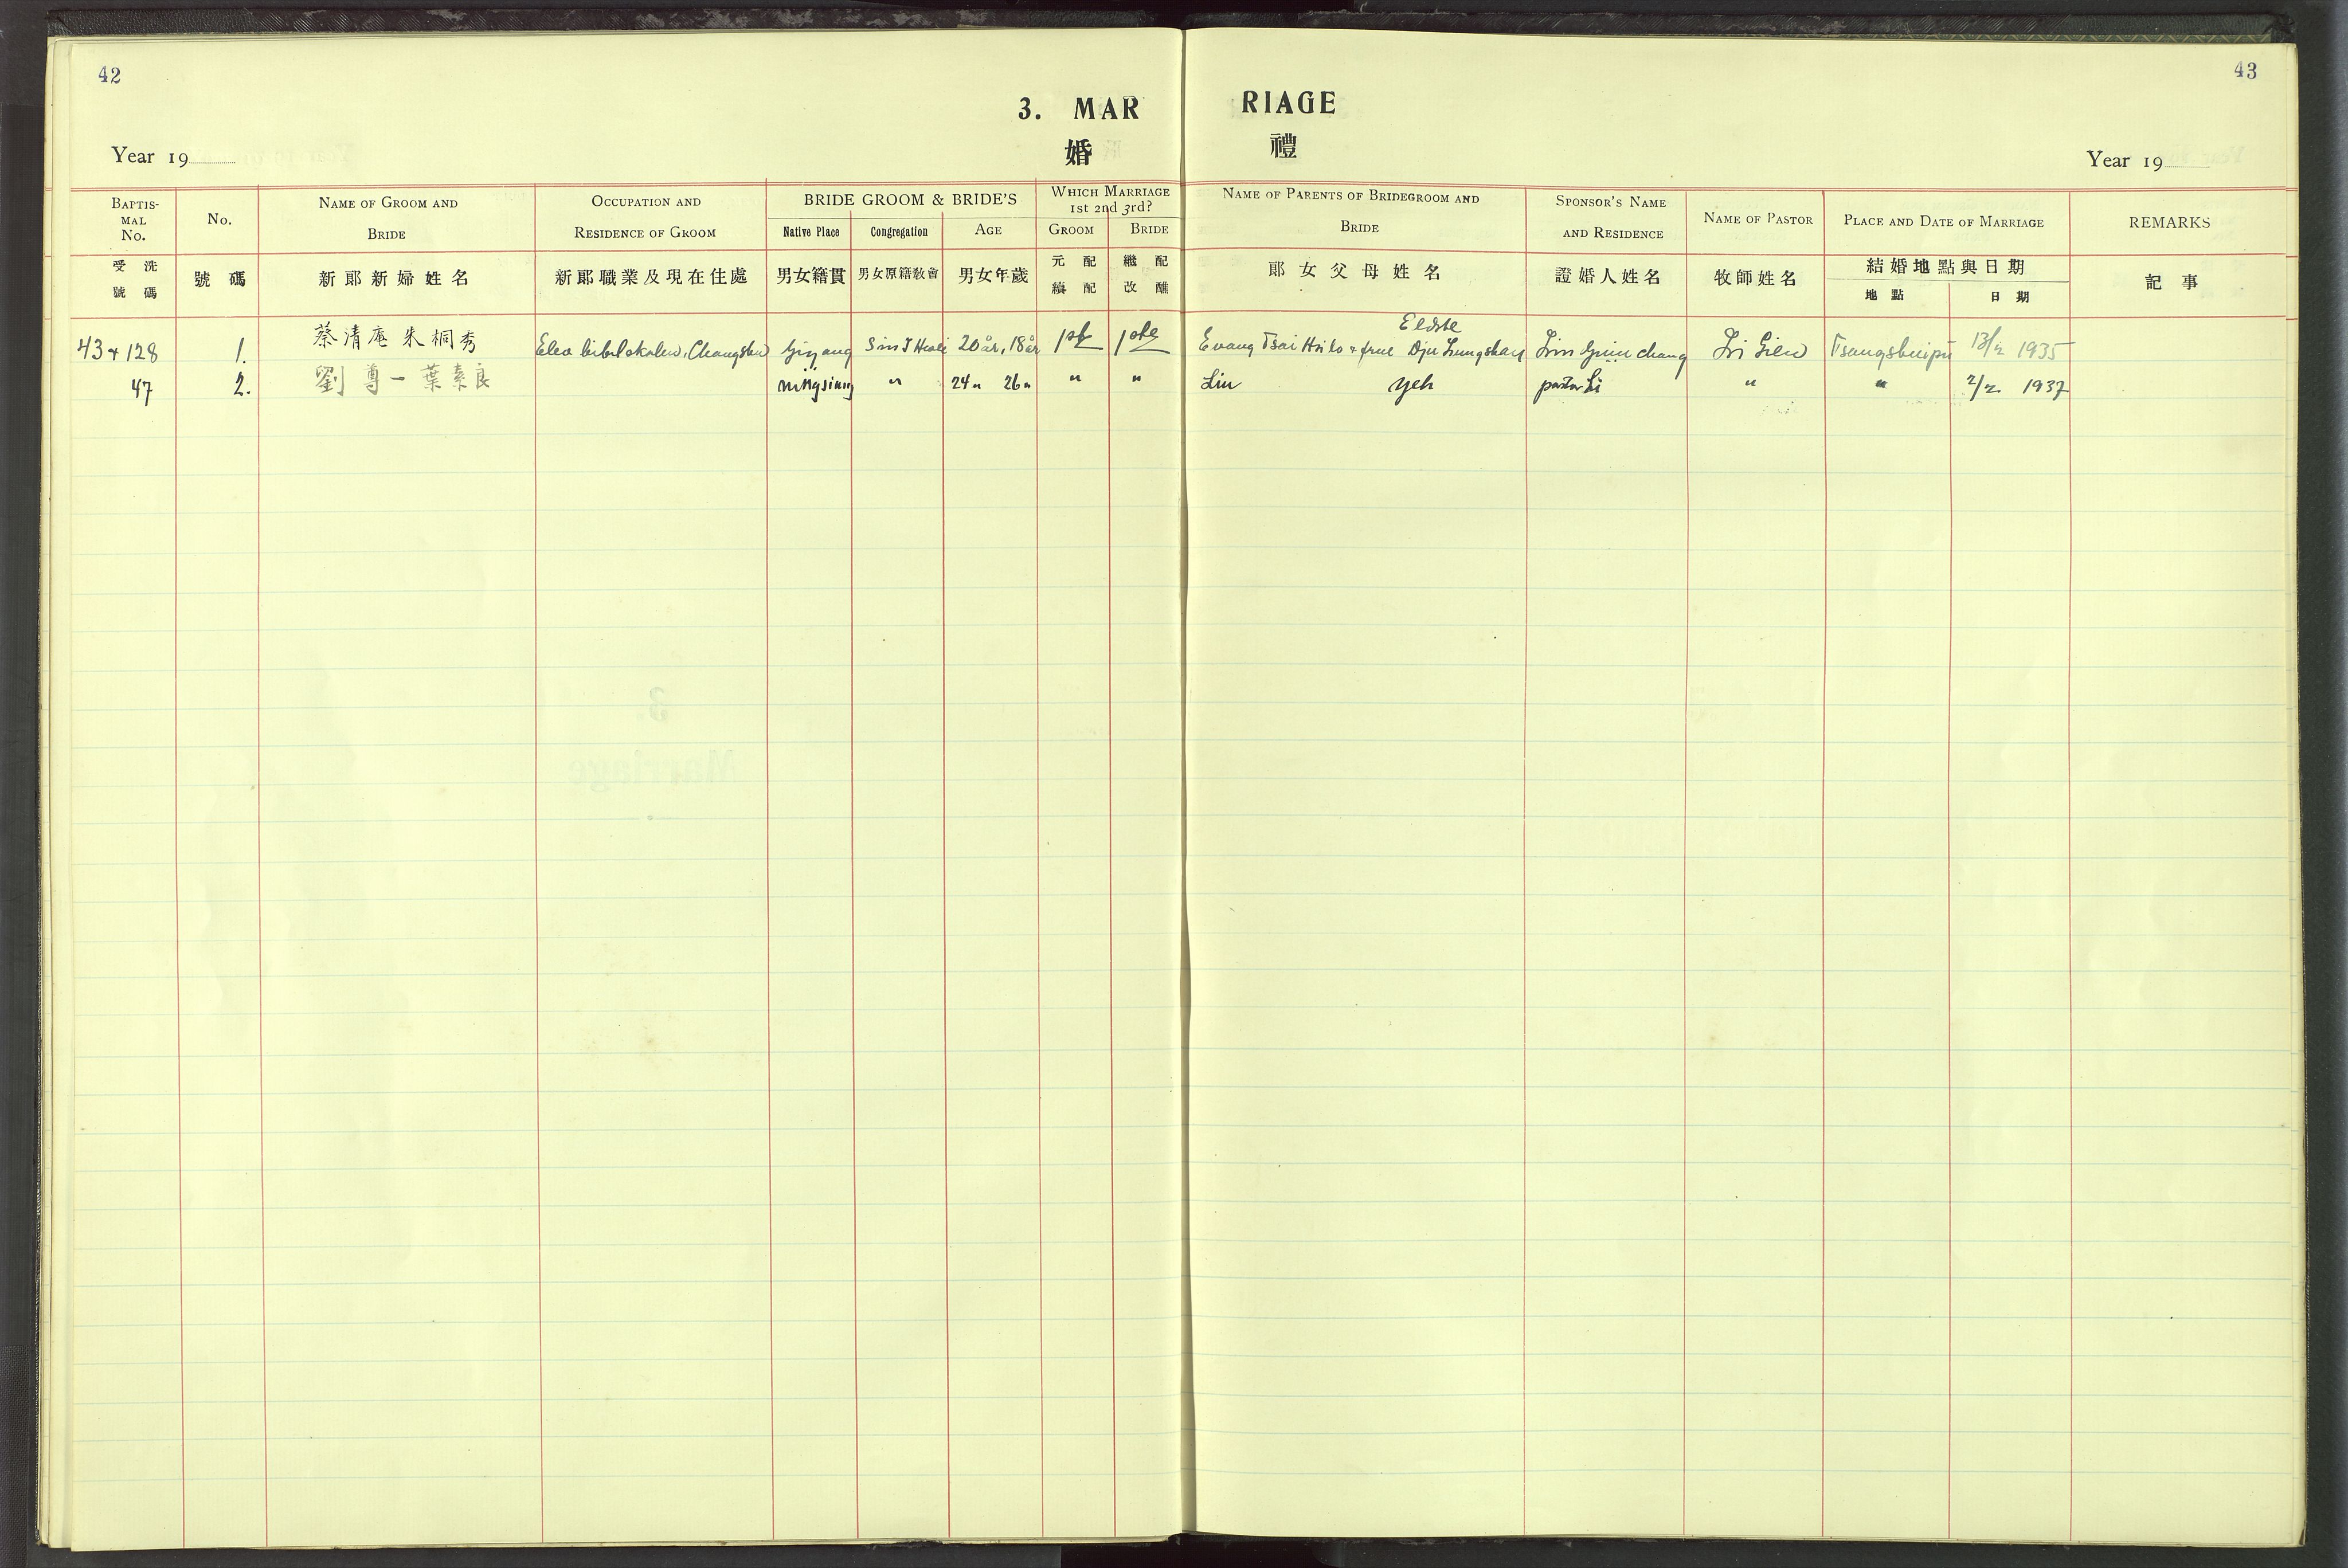 42
43
3. MAR RIAGE
婚 禮
Year 19
Year 19
BAPTISMAL No.
No.
NAME OF GROOM AND BRIDE
OCCUPATION AND RESIDENCE OF GROOM
BRIDE GROOM & BRIDE'S
Native Place
Congregation
AGE
WHICH MARRIAGE 1st 2nd 3rd?
GROOM
BRIDE
NAME OF PARENTS OF BRIDEGROOM AND BRIDE
SPONSOR'S NAME AND RESIDENCE
NAME OF PASTOR
PLACE AND DATE OF MARRIAGE
REMARKS
受洗號碼
號碼
新郞新婦姓名
新郞職業及現在住處
男女籍貫
男女原籍敎會
男女年歲
元配
續配
繼配
改醮
郞女父母姓名
證婚人姓名
牧師姓名
結婚地點與日期
地點
日期
記事
43+128 1. 蔡清庵 朱桐秀 Elev bibelskolen, Changsha Yiyang Sin I Hwei 20 år, 18 år 1st 1ste Evang Tsai & frue Eldste Dju Lungshan Tsangshuipu 13/2 1935
47 2. 劉尊一 葉素良 Ningsiang " 24 " 26 " " " Liu Yeh pastor Li " " 2/2 1937